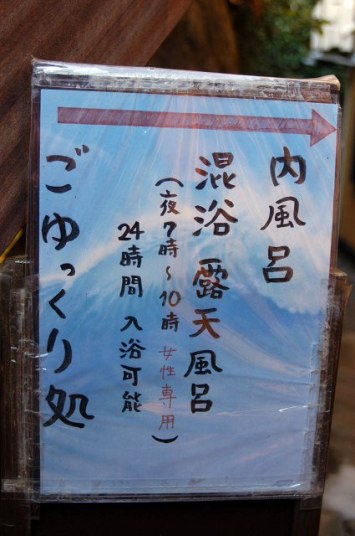 内風呂
混浴 露天風呂
(夜7時〜10時 女性専用)
24時間 入浴可能
ごゆっくり処